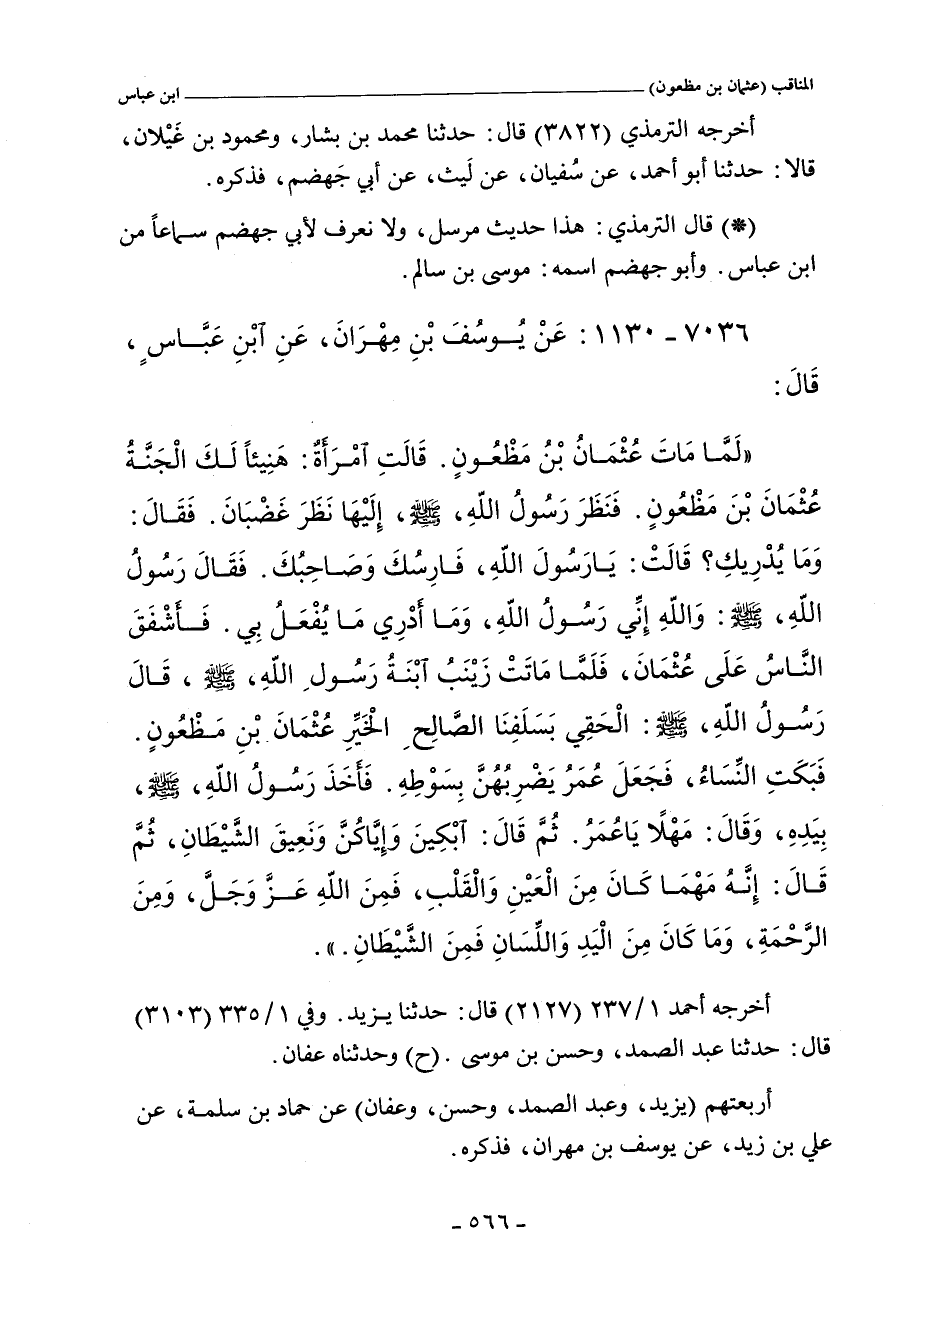 المناقب (عثمان بن مظعون) ــــــــــــــــــــــــ ابن عباس
أخرجه الترمذي (٣٨٢٢) قال: حدثنا محمد بن بشار، ومحمود بن غَيْلان،
قالا: حدثنا أبو أحمد، عن سُفيان، عن لَيث، عن أبي جَهضم، فذكره.
(*) قال الترمذي: هذا حديث مرسل، ولا نعرف لأبي جهضم سماعاً من
ابن عباس. وأبو جهضم اسمه: موسى بن سالم.
٧٠٣٦ ـ ١١٣٠: عَنْ يُوسُفَ بْنِ مِهْرَانَ، عَنِ ٱبْنِ عَبَّاسٍ،
قَالَ:
«لَمَّا مَاتَ عُثْمَانُ بْنُ مَظْعُونٍ. قَالَتِ ٱمْرَأَةٌ: هَنِيئاً لَكَ الْجَنَّةُ
عُثْمَانَ بْنَ مَظْعُونٍ. فَنَظَرَ رَسُولُ اللّهِ، ﷺ، إِلَيْهَا نَظَرَ غَضْبَانَ. فَقَالَ:
وَمَا يُدْرِيكِ؟ قَالَتْ: يَارَسُولَ اللّهِ، فَارِسُكَ وَصَاحِبُكَ. فَقَالَ رَسُولُ
اللّهِ، ﷺ: وَاللّهِ إِنِّي رَسُولُ اللّهِ، وَمَا أَدْرِي مَا يُفْعَلُ بِي. فَأَشْفَقَ
النَّاسُ عَلَى عُثْمَانَ، فَلَمَّا مَاتَتْ زَيْنَبُ ٱبْنَةُ رَسُولِ اللّهِ، ﷺ، قَالَ
رَسُولُ اللّهِ، ﷺ: الْحَقِي بَسَلَفِنَا الصَّالِحِ الْخَيِّرِ عُثْمَانَ بْنِ مَظْعُونٍ.
فَبَكَتِ النِّسَاءُ، فَجَعَلَ عُمَرُ يَضْرِبُهُنَّ بِسَوْطِهِ. فَأَخَذَ رَسُولُ اللّهِ، ﷺ،
بِيَدِهِ، وَقَالَ: مَهْلًا يَاعُمَرُ. ثُمَّ قَالَ: ٱبْكِينَ وَإِيَّاكُنَّ وَنَعِيقَ الشَّيْطَانِ، ثُمَّ
قَالَ: إِنَّهُ مَهْمَا كَانَ مِنَ الْعَيْنِ وَالْقَلْبِ، فَمِنَ اللّهِ عَزَّ وَجَلَّ، وَمِنَ
الرَّحْمَةِ، وَمَا كَانَ مِنَ الْيَدِ وَاللِّسَانِ فَمِنَ الشَّيْطَانِ.».
أخرجه أحمد ٢٣٧/١ (٢١٢٧) قال: حدثنا يزيد. وفي ٣٣٥/١ (٣١٠٣)
قال: حدثنا عبد الصمد، وحسن بن موسى. (ح) وحدثناه عفان.
أربعتهم (يزيد، وعبد الصمد، وحسن، وعفان) عن حماد بن سلمة، عن
علي بن زيد، عن يوسف بن مهران، فذكره.
ـ ٥٦٦ ـ